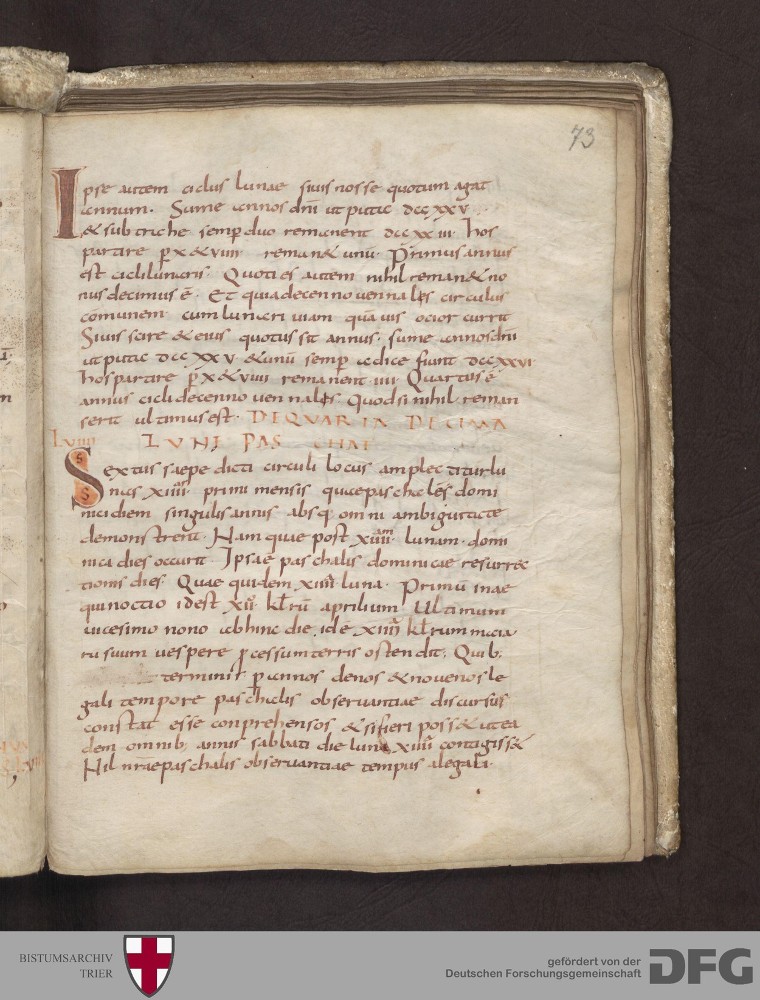 73
Ipse autem ciclus lunae siuis nosse quotum agat
annum. Sume annos dni ut puta dccxxv
& subtrahe semp duo remanent dccxxiii hos
partire p x & viiii reman& unu. Primus annus
est cicli lunaris. Quoties autem nihil reman& no
nus decimus ē. Et quia decennouennalis circulus
comunem cum lunari uiam qua uis ocior currit
Siuis scire & eius quotus sit annus. sume annos dni
ut puta dccxxv & unū semp adice fiunt dccxxvi
hos partire p x & viiii remanent iiii Quartus ē
annus cicli decennouennalis Quod si nihil reman
serit ultimus est. DE QUARTA DECIMA
Lviiii LUNE PASCHAE
Sextus saepe dicti circuli locus amplectitur lu
nas xiiii primi mensis quae paschales domi
nicidiem singulis annis absq; omni ambiguitate
demonstrent. Nam quae post xiiii lunam domi
nica dies occurrit Ipsae paschalis dominicae resurrec
tionis dies. Quae quidem xiiii luna. Primū in ae
quinoctio id est xii kl rū aprilium Ultimum
uicesimo nono ab hinc die id ē xiiii kl rum maia
rum suum uespere pcessum terris ostendit. Quib;
terminis p annos denos & nouenos le
gali tempore paschalis obseruantiae discursus
constat esse conprehensos & si fieri poss& ut ea
dem omnib; annis sabbati die luna xiiii contigiss&
Nil nrae paschalis obseruantiae tempus a legali.
BISTUMSARCHIV
TRIER
gefördert von der
Deutschen Forschungsgemeinschaft
DFG